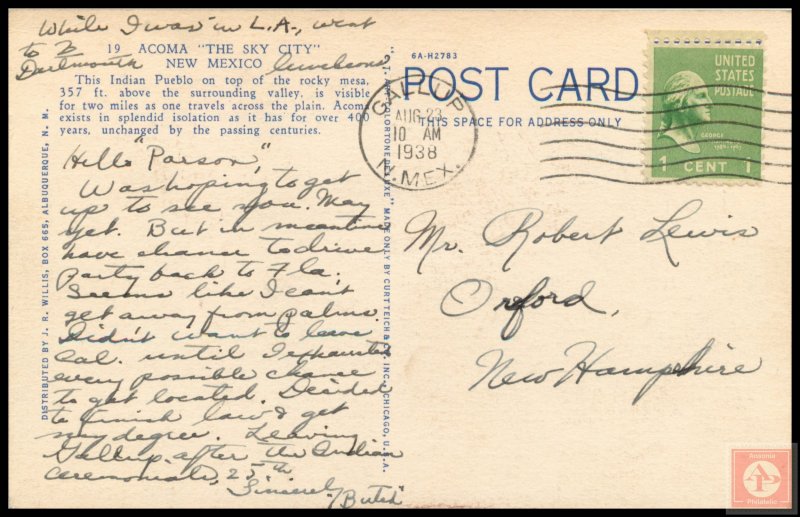 While I was in L.A., went
to 2
Dartmouth
luncheons
19 ACOMA "THE SKY CITY"
NEW MEXICO
This Indian Pueblo on top of the rocky mesa,
357 ft. above the surrounding valley, is visible
for two miles as one travels across the plain. Acoma
exists in splendid isolation as it has for over 400
years, unchanged by the passing centuries.
Hello "Parson",
Was hoping to get
up to see you. May
yet. But in meantime
have chance to drive
party back to Fla.
Seems like I can't
get away from palms.
Didn't want to leave
Cal. until I exhausted
every possible chance
to get located. Decided
to finish law & get
my degree. Leaving
Gallup after the Indian
ceremonials, 25th
Sincerely "Butch"
DISTRIBUTED BY J. R. WILLIS, BOX 665, ALBUQUERQUE, N. M.
"C. T. ART-COLORTONE DELUXE" MADE ONLY BY CURT TEICH & CO., INC., CHICAGO, U.S.A.
6A-H2783
POST CARD
THIS SPACE FOR ADDRESS ONLY
GALLUP
AUG 23
10 AM
1938
N. MEX.
UNITED
STATES
POSTAGE
GEORGE
1 CENT 1
Mr. Robert Lewis
Orford,
New Hampshire
Ansonia
Philatelic